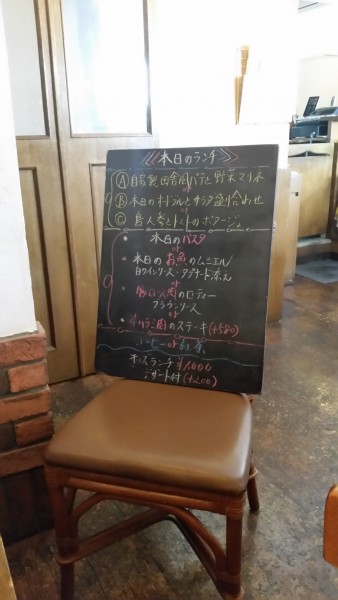 本日のランチ
Ⓐ 自家製田舎風パテと野菜マリネ
or
Ⓑ 本日のオードブルとサラダ盛り合わせ
or
Ⓒ 島人参とトマトのポタージュ
・ 本日のパスタ
or
・ 本日のお魚のムニエル
白ワインソース・タプナード添え
or
・ 豚ロース肉のロティー
ソース
or
・ イチボ肉のステーキ(+580)
コーヒー or 紅茶
ランチ ¥1,000
デザート付 (+200)